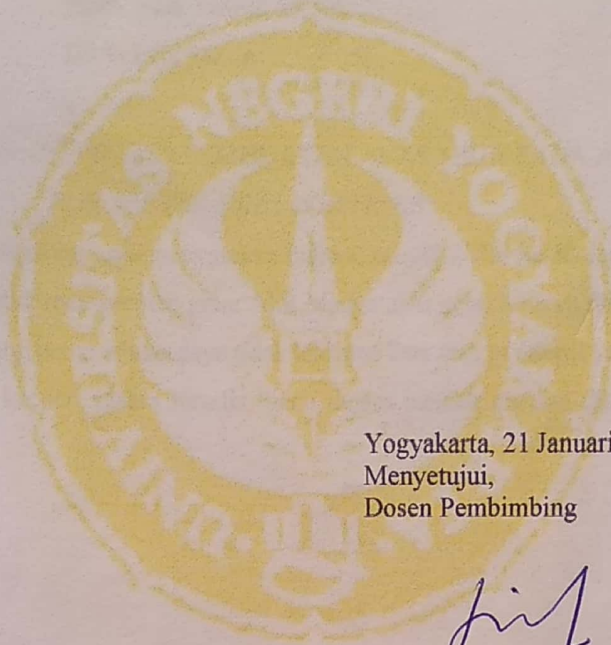 UNIVERSITAS NEGERI YOGYAKARTA
Yogyakarta, 21 Januari
Menyetujui,
Dosen Pembimbing